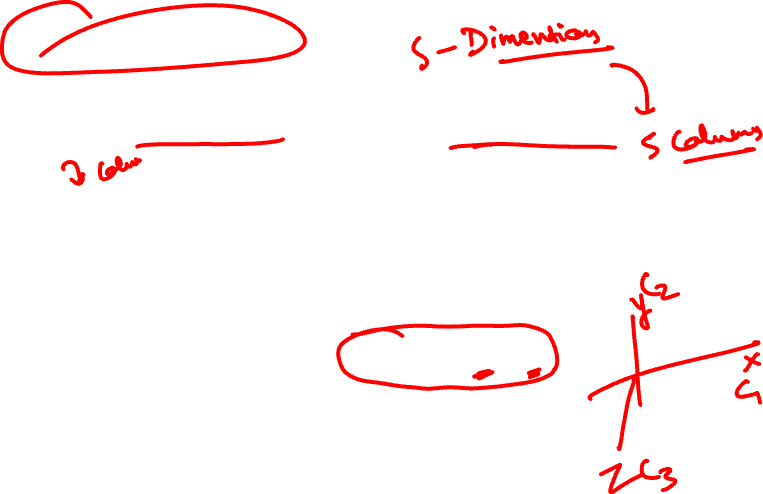 5-Dimentions
5 Columns
Colum
y C2
x
C1
Z C3